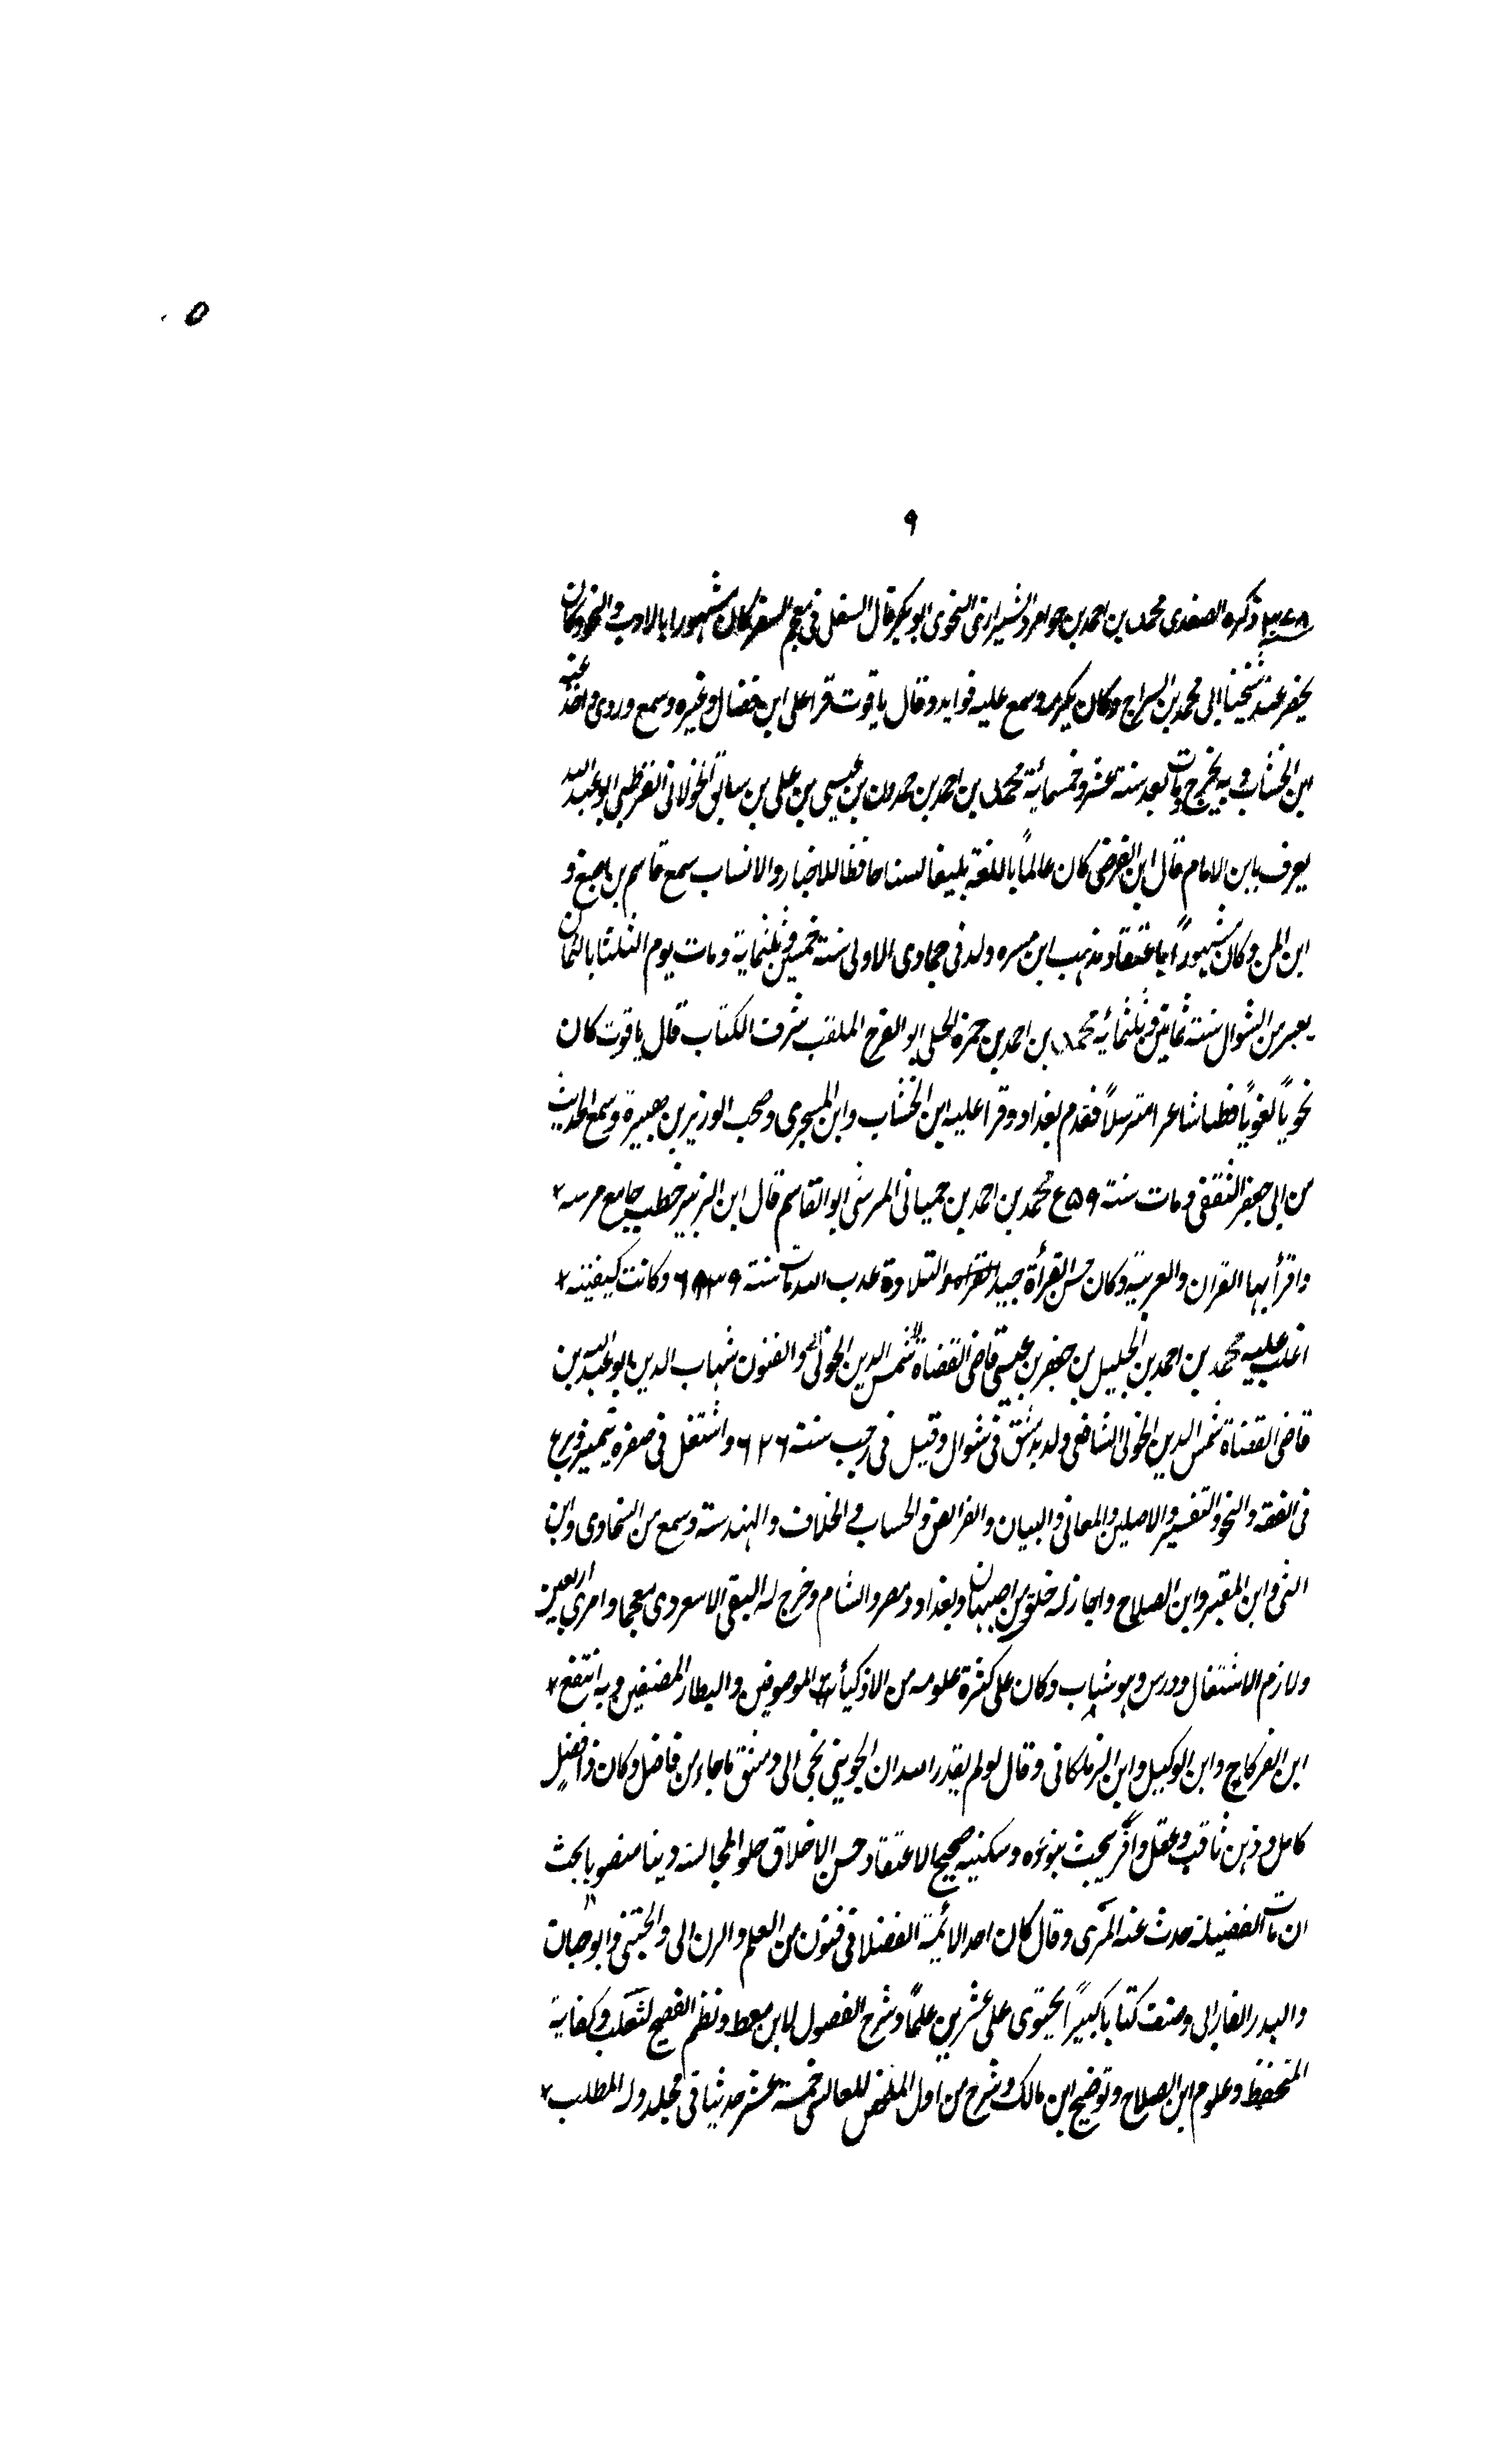 ٥
٩
ذكره الصفدى محمد بن احمد بن جوامرد الشيرازى النحوى ابو بكر قال السلفى فى معجم السفر كان مشهورا بالادب و النحو وكان
يحضر عند شيخنا ابى محمد بن السراج وكان يكرمه وسمع عليه فوايد وقال ياقوت قرا على ابن فضال وغيره وسمع وروى واخذ عنه
ابن الخشاب وبه تخرج ومات بعد سنة عشر وخمسمائة محمد بن احمد بن حمدون بن عيسى بن على بن سابق الخولانى القرطبى ابو عبد الله
يعرف بابن الامام قال ابن الفرضى كان عالماً باللغة بليغا لسنا حافظا للاخبار والانساب سمع قاسم بن اصبغ و
ابن وكان مشهوراً باعتقاد مذهب ابن مسره ولد فى جمادى الاولى سنة خمسين وثلثماية ومات يوم الثلثا بالثمان
من الشوال سنة ثمانين وثلثمائة محمد بن احمد بن حمزة الحلى ابو الفرج الملقب شرف الكتاب قال ياقوت كان
نحوياً لغوياً فطنا شاعرا مترسلاً فقدم بغداد وقرا عليه ابن الخشاب وابن وصحب الوزير بن هبيرة وسمع الحديث
من ابى جعفر الثقفى ومات سنة ٥٩ع محمد بن احمد بن حميانى المرسى ابو القاسم قال ابن الزبير خطب جامع مرسه
واقرأ بها القران والعربية وكان حسن القرأة جيد التلاوة مات سنة وكانت كيفيته
اغلب عليه محمد بن احمد بن الخليل بن جعفر بن عيسى قاضى القضاة شمس الدين الخوئى ذو الفنون شهاب الدين ابو عبد الله بن
قاضى القضاة شمس الدين الخوى الشافعى ولد بدمشق فى شوال وقيل فى رجب سنة ٦٢٦ واشتغل فى صغره وبرع
فى الفقه والنحو والتفسير والاصلين والمعانى والبيان والفرائض والحساب والخلاف والهندسة وسمع من السخاوى وابن
التى وابن المقير وابن الصلاح واجاز له خلق من اصبهان وبغداد ومصر والشام وخرج له التقى الاسعردى معجما اربعين
ولازم الاشتغال ودرس وهو شاب وكان على كثرة علومه من الاذكيأ الموصوفين والبطار المصنفين وبه انتفع
ابن الفركاح وابن الوكيل وابن الزملكانى وقال لو لم يقدر الله ان الجوينى نحى الى دمشق ما جاء من فاضل وكان ذا فضيل
كامل وذهن ثاقب وعقل وافر يبحث بتؤدة وسكنيه صحيح الاعتقاد حسن الاخلاق حلو المجالسة دينا
الفضيلة حدث عنه المزى وقال كان احد الائمة الفضلا فى فنون من العلم والبرزالى والختنى وابو حيان
والبدر الفارابى وصنف كتابا كبيراً يحتوى على عشرين علماً وشرح الفصول لابن معط ونظم الفصيح لثعلب وكفاية
المتحفظ وعلوم ابن الصلاح وتوضيح ابن مالك وشرح من اول الملخص للقابسى خمسة عشر حديثا فى مجلد وله المطلب